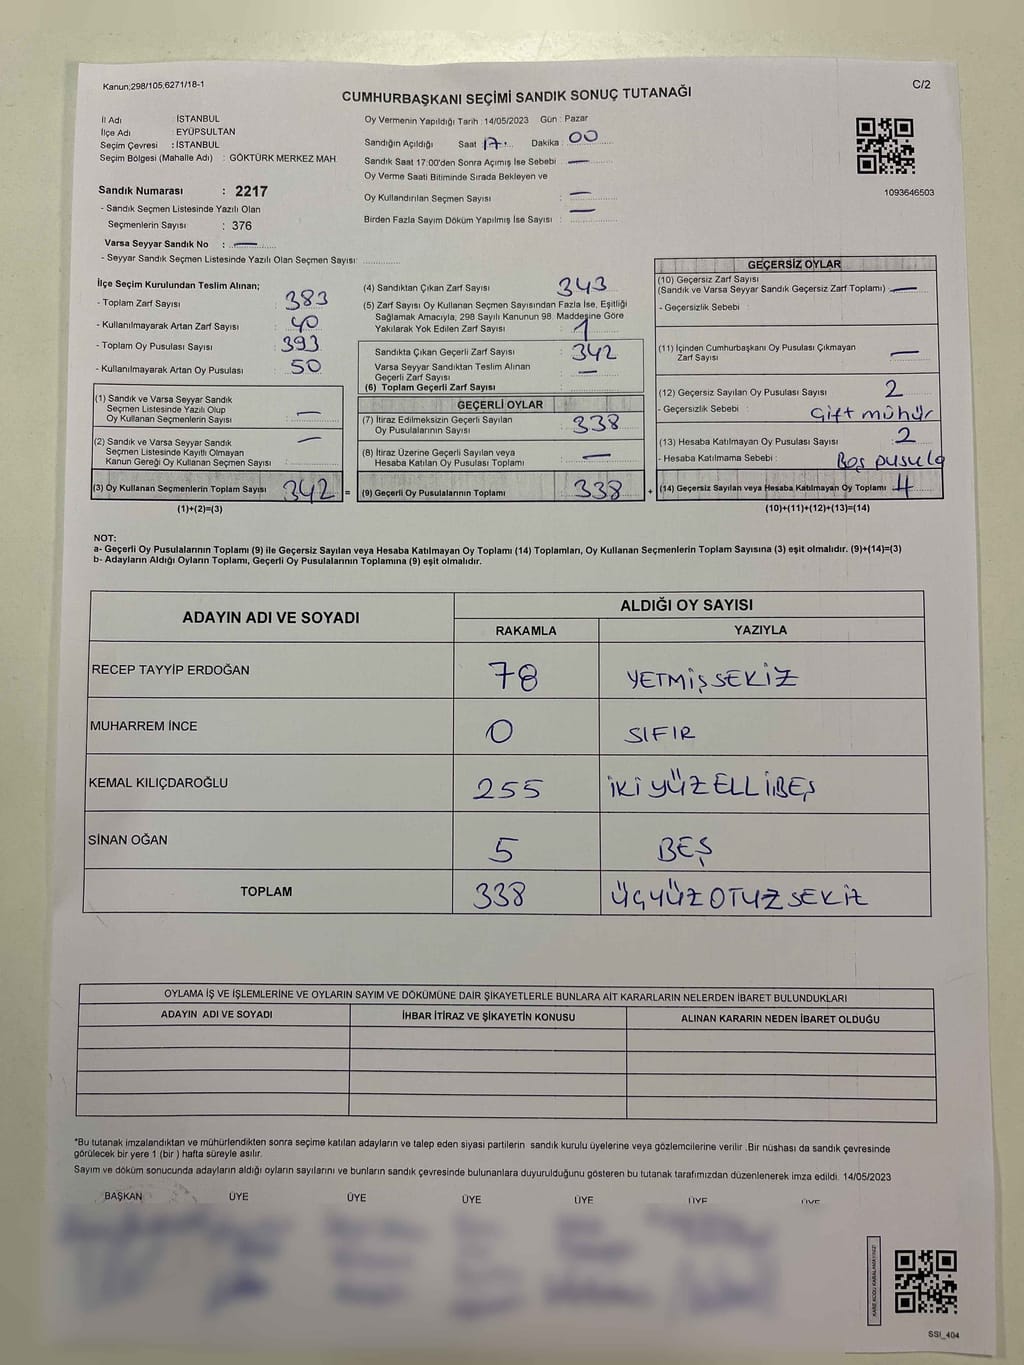 Kanun,298/105,6271/18-1
C/2
CUMHURBAŞKANI SEÇİMİ SANDIK SONUÇ TUTANAĞI
İl Adı İSTANBUL
İlçe Adı EYÜPSULTAN
Seçim Çevresi : İSTANBUL
Seçim Bölgesi (Mahalle Adı) : GÖKTÜRK MERKEZ MAH.
Sandık Numarası : 2217
- Sandık Seçmen Listesinde Yazılı Olan
Seçmenlerin Sayısı : 376
Varsa Seyyar Sandık No : —
- Seyyar Sandık Seçmen Listesinde Yazılı Olan Seçmen Sayısı:
Oy Vermenin Yapıldığı Tarih : 14/05/2023 Gün : Pazar
Sandığın Açıldığı Saat 17 Dakika : 00
Sandık Saat 17:00'den Sonra Açımış İse Sebebi —
Oy Verme Saati Bitiminde Sırada Bekleyen ve
Oy Kullandırılan Seçmen Sayısı : —
Birden Fazla Sayım Döküm Yapılmış İse Sayısı : —
1093646503
İlçe Seçim Kurulundan Teslim Alınan;
- Toplam Zarf Sayısı : 383
- Kullanılmayarak Artan Zarf Sayısı : 40
- Toplam Oy Pusulası Sayısı : 393
- Kullanılmayarak Artan Oy Pusulası : 50
(1) Sandık ve Varsa Seyyar Sandık
Seçmen Listesinde Yazılı Olup
Oy Kullanan Seçmenlerin Sayısı : —
(2) Sandık ve Varsa Seyyar Sandık
Seçmen Listesinde Kayıtlı Olmayan
Kanun Gereği Oy Kullanan Seçmen Sayısı : —
(3) Oy Kullanan Seçmenlerin Toplam Sayısı 342 =
(1)+(2)=(3)
(4) Sandıktan Çıkan Zarf Sayısı : 343
(5) Zarf Sayısı Oy Kullanan Seçmen Sayısından Fazla İse, Eşitliği
Sağlamak Amacıyla, 298 Sayılı Kanunun 98. Maddesine Göre
Yakılarak Yok Edilen Zarf Sayısı : 1
Sandıkta Çıkan Geçerli Zarf Sayısı : 342
Varsa Seyyar Sandıktan Teslim Alınan
Geçerli Zarf Sayısı : —
(6) Toplam Geçerli Zarf Sayısı :
GEÇERLİ OYLAR
(7) İtiraz Edilmeksizin Geçerli Sayılan
Oy Pusulalarının Sayısı : 338
(8) İtiraz Üzerine Geçerli Sayılan veya
Hesaba Katılan Oy Pusulası Toplamı : —
(9) Geçerli Oy Pusulalarının Toplamı : 338 +
GEÇERSİZ OYLAR
(10) Geçersiz Zarf Sayısı
(Sandık ve Varsa Seyyar Sandık Geçersiz Zarf Toplamı) : —
- Geçersizlik Sebebi :
(11) İçinden Cumhurbaşkanı Oy Pusulası Çıkmayan
Zarf Sayısı : —
(12) Geçersiz Sayılan Oy Pusulası Sayısı : 2
- Geçersizlik Sebebi : Çift mühür
(13) Hesaba Katılmayan Oy Pusulası Sayısı : 2
- Hesaba Katılmama Sebebi : Boş pusula
(14) Geçersiz Sayılan veya Hesaba Katılmayan Oy Toplamı : 4
(10)+(11)+(12)+(13)=(14)
NOT:
a- Geçerli Oy Pusulalarının Toplamı (9) ile Geçersiz Sayılan veya Hesaba Katılmayan Oy Toplamı (14) Toplamları, Oy Kullanan Seçmenlerin Toplam Sayısına (3) eşit olmalıdır. (9)+(14)=(3)
b- Adayların Aldığı Oyların Toplamı, Geçerli Oy Pusulalarının Toplamına (9) eşit olmalıdır.
ADAYIN ADI VE SOYADI
ALDIĞI OY SAYISI
RAKAMLA YAZIYLA
RECEP TAYYİP ERDOĞAN 78 YETMİŞSEKİZ
MUHARREM İNCE 0 SIFIR
KEMAL KILIÇDAROĞLU 255 İKİYÜZELLİBEŞ
SİNAN OĞAN 5 BEŞ
TOPLAM 338 ÜÇYÜZOTUZSEKİZ
OYLAMA İŞ VE İŞLEMLERİNE VE OYLARIN SAYIM VE DÖKÜMÜNE DAİR ŞİKAYETLERLE BUNLARA AİT KARARLARIN NELERDEN İBARET BULUNDUKLARI
ADAYIN ADI VE SOYADI İHBAR İTİRAZ VE ŞİKAYETİN KONUSU ALINAN KARARIN NEDEN İBARET OLDUĞU
*Bu tutanak imzalandıktan ve mühürlendikten sonra seçime katılan adayların ve talep eden siyasi partilerin sandık kurulu üyelerine veya gözlemcilerine verilir .Bir nüshası da sandık çevresinde
görülecek bir yere 1 (bir ) hafta süreyle asılır.
Sayım ve döküm sonucunda adayların aldığı oyların sayılarını ve bunların sandık çevresinde bulunanlara duyurulduğunu gösteren bu tutanak tarafımızdan düzenlenerek imza edildi. 14/05/2023
BAŞKAN ÜYE ÜYE ÜYE ÜYE ÜYE ÜYE
KARE KODU KARALAMAYINIZ!
SSI_404